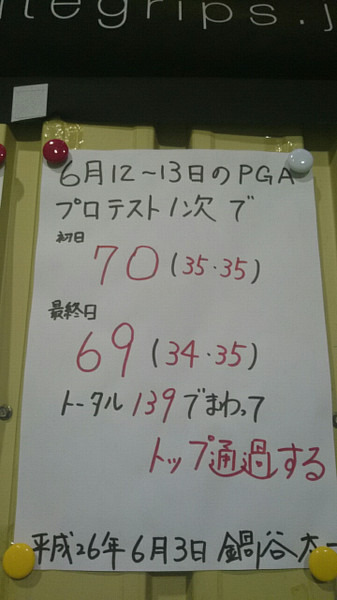 tegrips.j
6月12~13日のPGA
プロテスト1次で
初日
70(35・35)
最終日
69(34・35)
トータル139でまわって
トップ通過する
平成26年6月3日 鍋谷太一